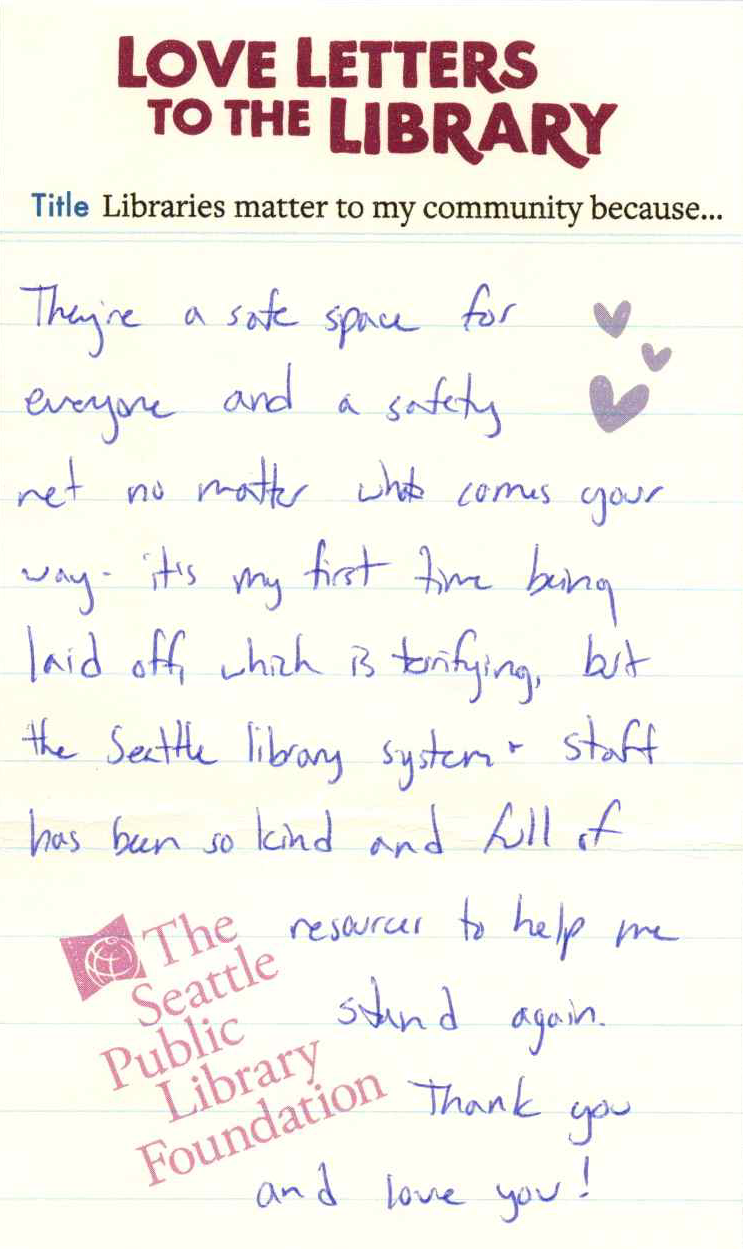 LOVE LETTERS
TO THE LIBRARY
Title Libraries matter to my community because...
They're a safe space for
everyone and a safety
net no matter what comes your
way - it's my first time being
laid off, which is terrifying, but
the Seattle library system + staff
has been so kind and full of
resources to help me
stand again.
Thank you
and love you!
The
Seattle
Public
Library
Foundation